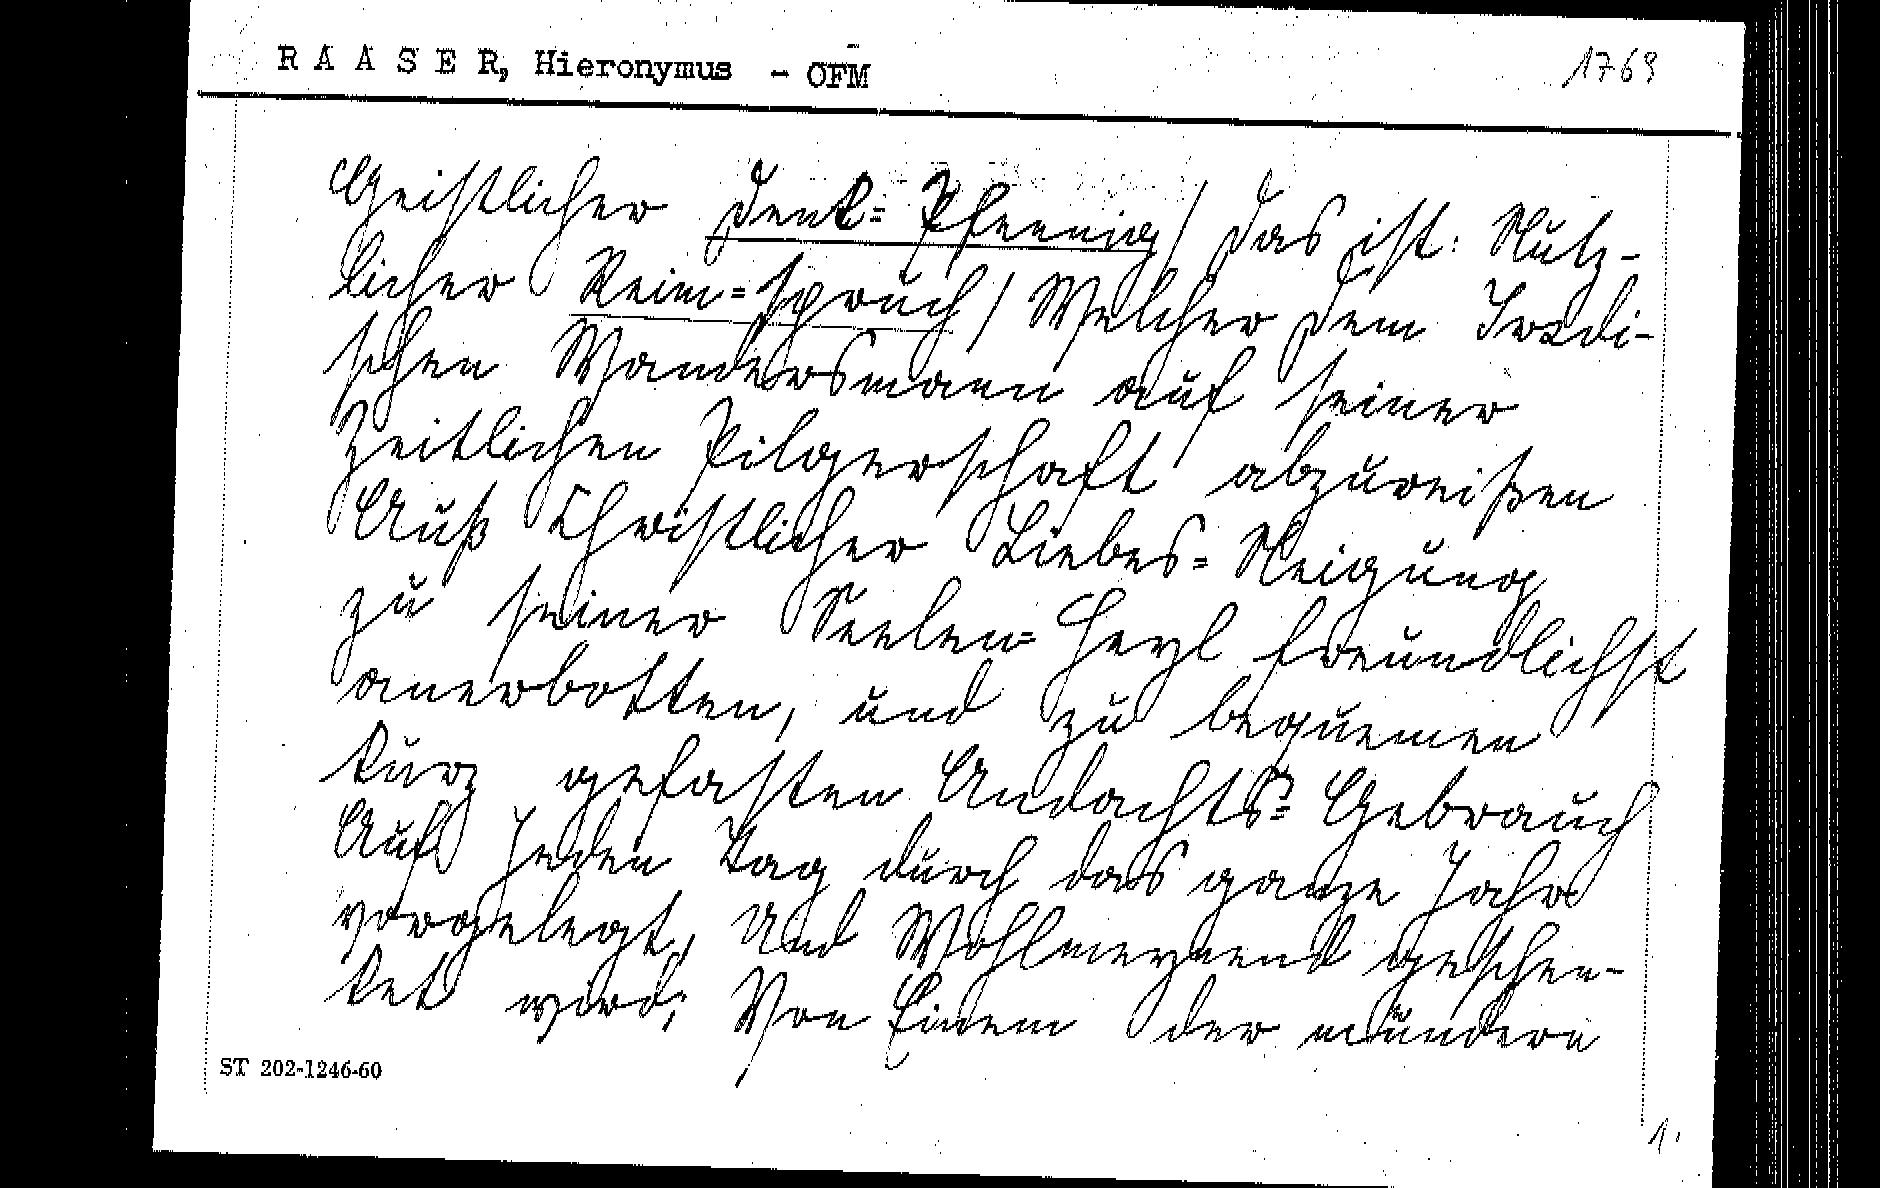 RAASER, Hieronymus - OFM
1769
Geistlicher Denk=Pfennig / das ist: Nutz-
licher Reim=spruch / Welcher dem Irrdi-
schen Wandersmann auf seiner
Zeitlichen Pilgerschaft abzureißen
Auß Christlicher Liebes=Neigung
zu seiner Seelen=Heyl freundlichst
anerbotten, und zu bequemen
kurz gefasten Andachts=Gebrauch
Auf Jeden Tag durch das ganze Jahr
vorgelegt, Und Wohlmeynend geschen-
ket wird; Von Einem der mündern
ST 202-1246-60
1.